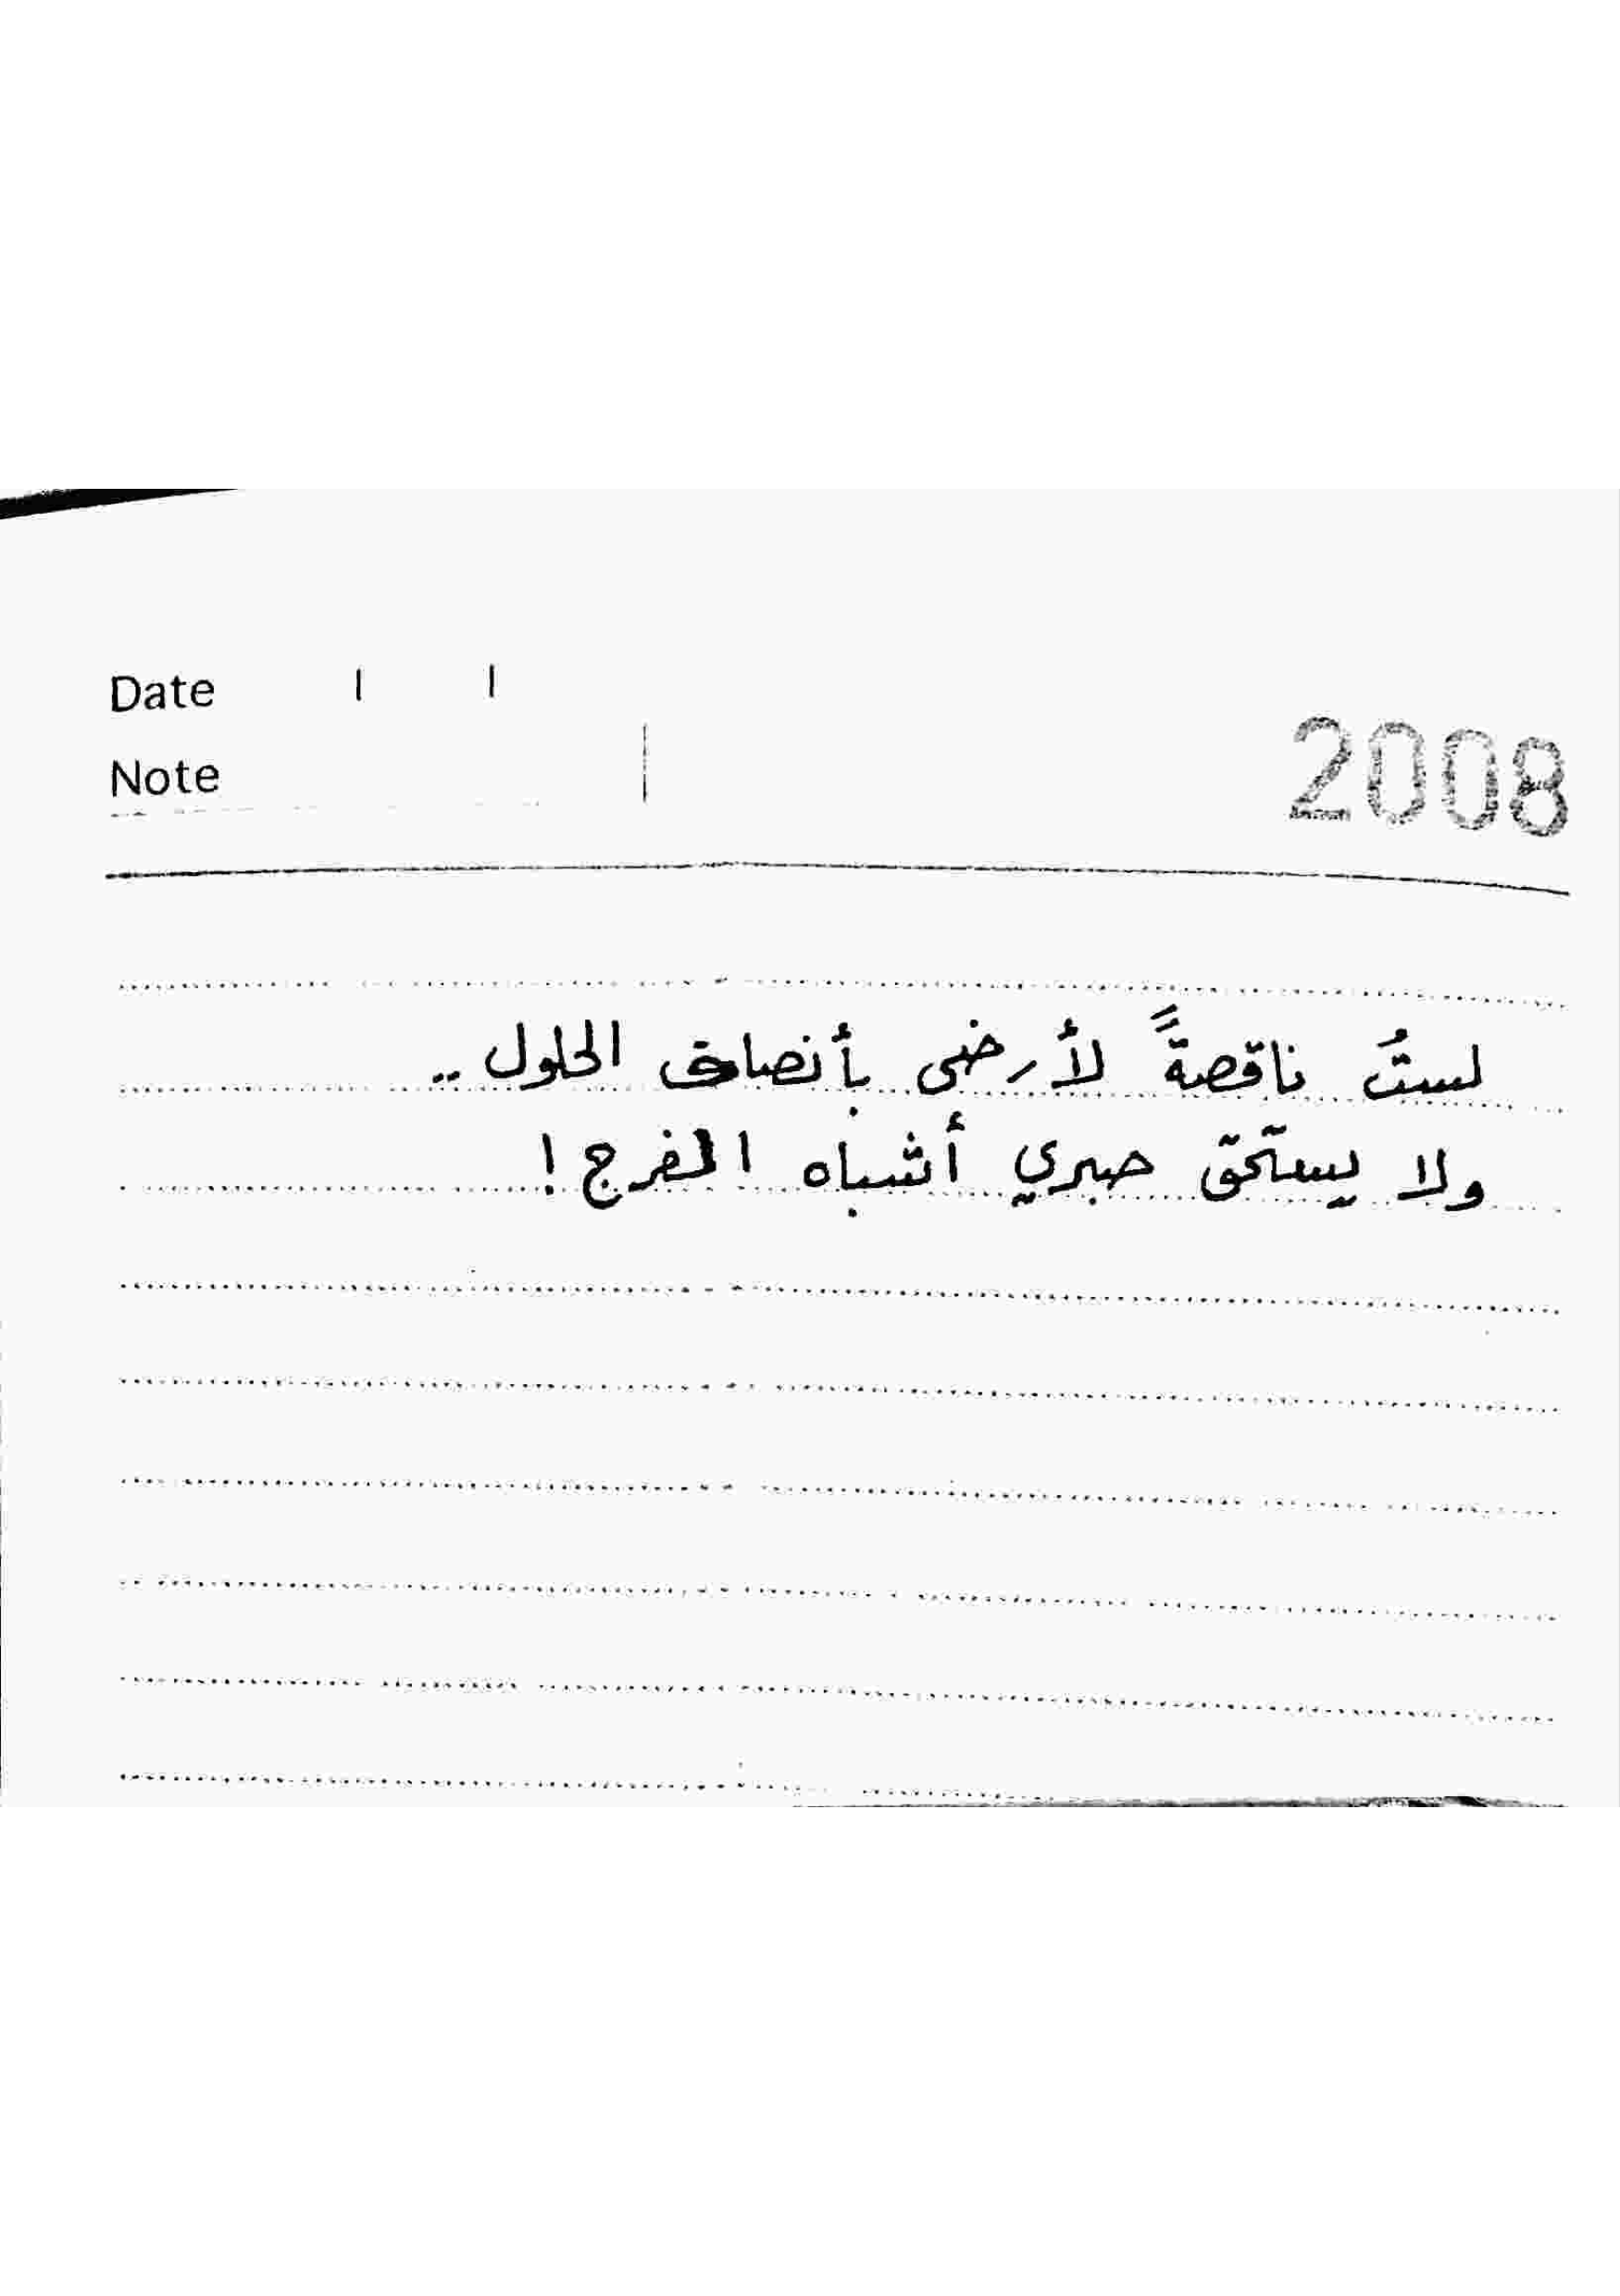 Date / /
Note
2008
لستُ ناقصةً لأرضى بأنصاف الحلول ..
ولا يستحق صبري أشباه الفرج !